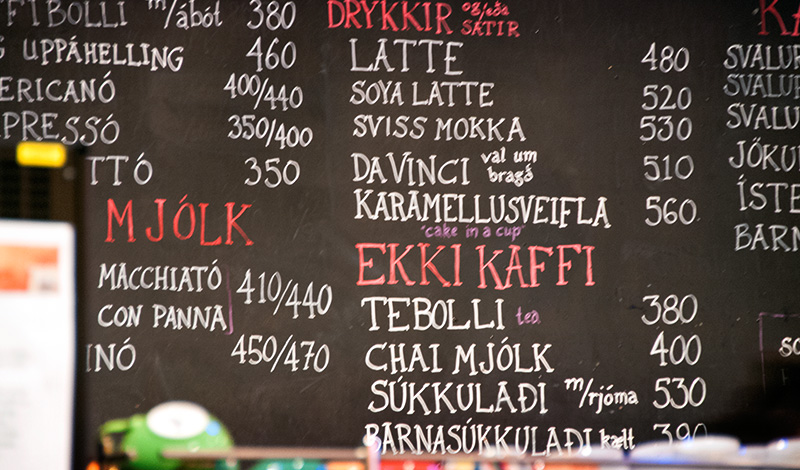 FFIBOLLI m/ábót 380
G UPPÁHELLING 460
ERICANÓ 400/440
PRESSÓ 350/400
TTÓ 350
MJÓLK
MACCHIATÓ
CON PANNA 410/440
INÓ 450/470
DRYKKIR og/eða SÆTIR
LATTE 480
SOYA LATTE 520
SVISS MOKKA 530
DAVINCI val um bragð 510
KARAMELLUSVEIFLA 560
"cake in a cup"
EKKI KAFFI
TEBOLLI tea 380
CHAI MJÓLK 400
SÚKKULAÐI m/rjóma 530
BARNASÚKKULAÐI kælt 390
KA
SVALUR
SVALUR
SVALU
JÖKU
ÍSTE
BARNA
SO